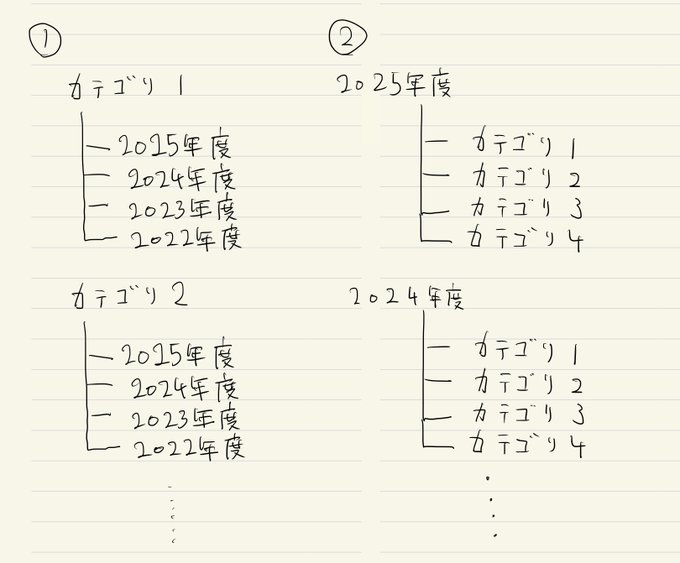 ①
カテゴリ 1
2025年度
2024年度
2023年度
2022年度
カテゴリ 2
2025年度
2024年度
2023年度
2022年度
②
2025年度
カテゴリ 1
カテゴリ 2
カテゴリ 3
カテゴリ 4
2024年度
カテゴリ 1
カテゴリ 2
カテゴリ 3
カテゴリ 4